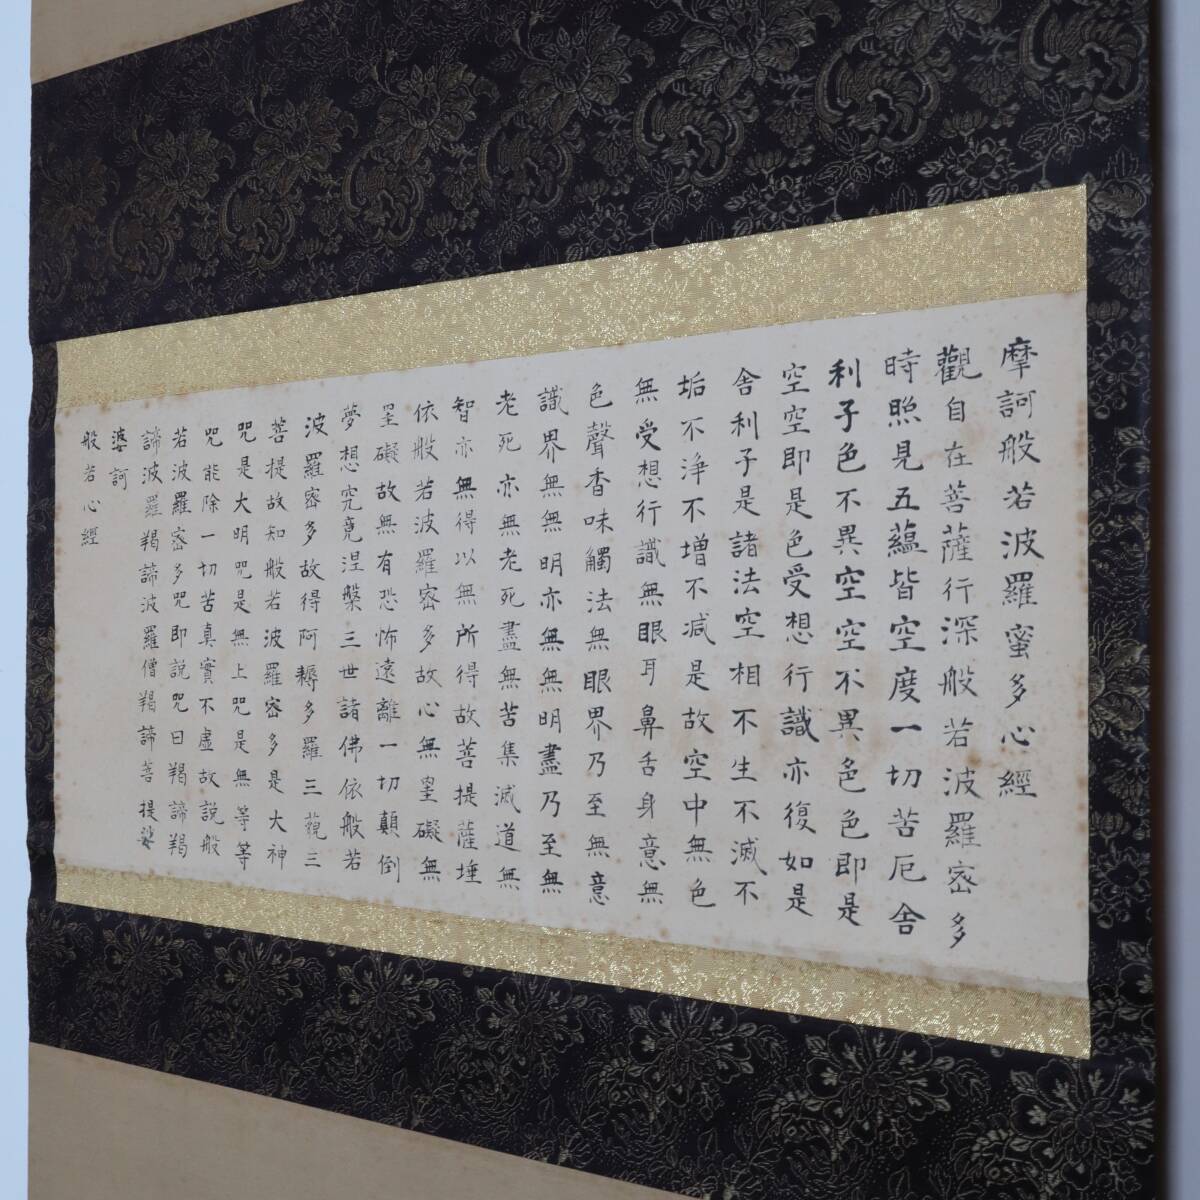 摩訶般若波羅蜜多心經
觀自在菩薩行深般若波羅密多
時照見五蘊皆空度一切苦厄舎
利子色不異空空不異色色即是
空空即是色受想行識亦復如是
舎利子是諸法空相不生不滅不
垢不浄不增不减是故空中無色
無受想行識無眼耳鼻舌身意無
色聲香味觸法無眼界乃至無意
識界無無明亦無無明盡乃至無
老死亦無老死盡無苦集滅道無
智亦無得以無所得故菩提薩埵
依般若波羅密多故心無罣礙無
罣礙故無有恐怖遠離一切顛倒
夢想究竟涅槃三世諸佛依般若
波羅密多故得阿耨多羅三藐三
菩提故知般若波羅密多是大神
咒是大明咒是無上咒是無等等
咒能除一切苦真實不虛故說般
若波羅密多咒即説咒曰羯諦羯
諦波羅羯諦波羅僧羯諦菩提娑
婆訶
般若心經